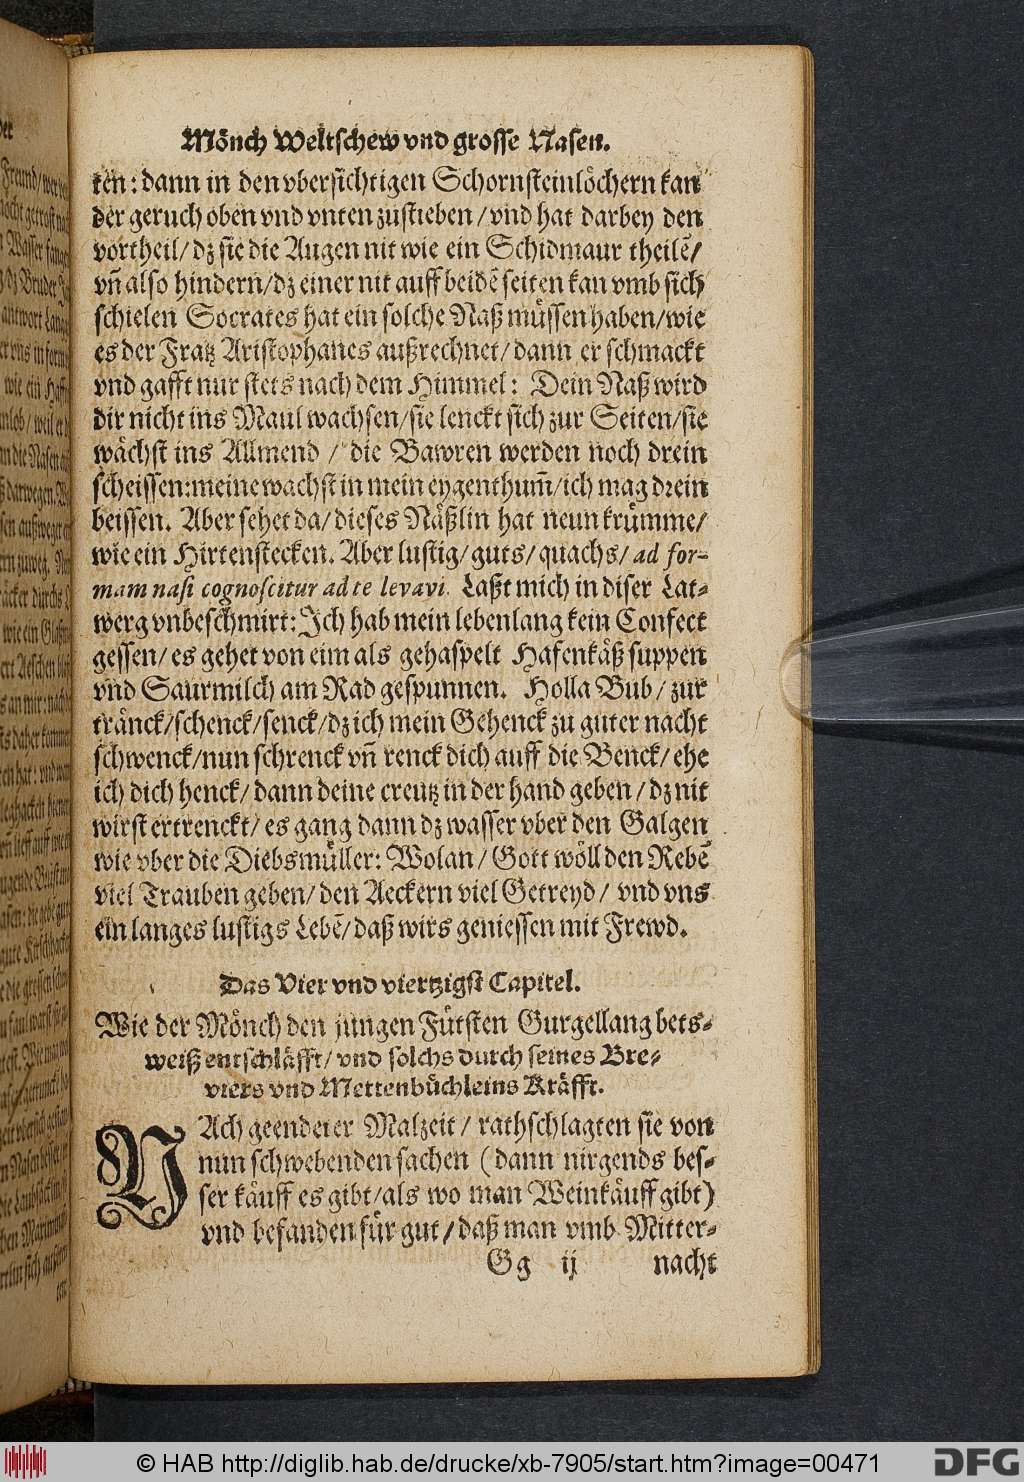 Mönch Weltschew vnd grosse Nasen.
ten: dann in den vbersichtigen Schornsteinlöchern kan
der geruch oben vnd vnten zustieben / vnd hat darbey den
vortheil / dz sie die Augen nit wie ein Schidmaur theilẽ /
vñ also hindern / dz einer nit auff beidẽ seiten kan vmb sich
schielen Socrates hat ein solche Naß müssen haben / wie
es der Fratz Aristophanes außrechnet / dann er schmackt
vnd gafft nur stets nach dem Himmel: Dein Naß wird
dir nicht ins Maul wachsen / sie lenckt sich zur Seiten / sie
wächst ins Allmend / die Bawren werden noch drein
scheissen: meine wachst in mein eygenthum̃ / ich mag drein
beissen. Aber sehet da / dieses Näßlin hat neun krümme /
wie ein Hirtenstecken. Aber lustig / guts / quachs / ad for-
mam nasi cognoscitur ad te levavi. Laßt mich in diser Lat-
werg vnbeschmirt: Ich hab mein lebenlang kein Confect
gessen / es gehet von eim als gehaspelt Hafenkäß suppen
vnd Saurmilch am Rad gespunnen. Holla Bub / zur
tränck / schenck / senck / dz ich mein Gehenck zu guter nacht
schwenck / nun schrenck vñ renck dich auff die Benck / ehe
ich dich henck / dann deine creutz in der hand geben / dz nit
wirst ertrenckt / es gang dann dz wasser vber den Galgen
wie vber die Diebsmüller: Wolan / Gott wöll den Rebẽ
viel Trauben geben / den Aeckern viel Getreyd / vnd vns
ein langes lustigs Lebẽ / daß wirs geniessen mit Frewd.
Das Vier vnd viertzigst Capitel.
Wie der Mönch den jungen Fürsten Gurgellang bets-
weiß entschläfft / vnd solchs durch seines Bre-
viers vnd Mettenbüchleins Kräfft.
NAch geendeter Malzeit / rathschlagten sie von
nun schwebenden sachen (dann nirgends bes-
ser käuff es gibt / als wo man Weinkäuff gibt)
vnd befanden für gut / daß man vmb Mitter-
Gg ij nacht
© HAB http://diglib.hab.de/drucke/xb-7905/start.htm?image=00471
DFG